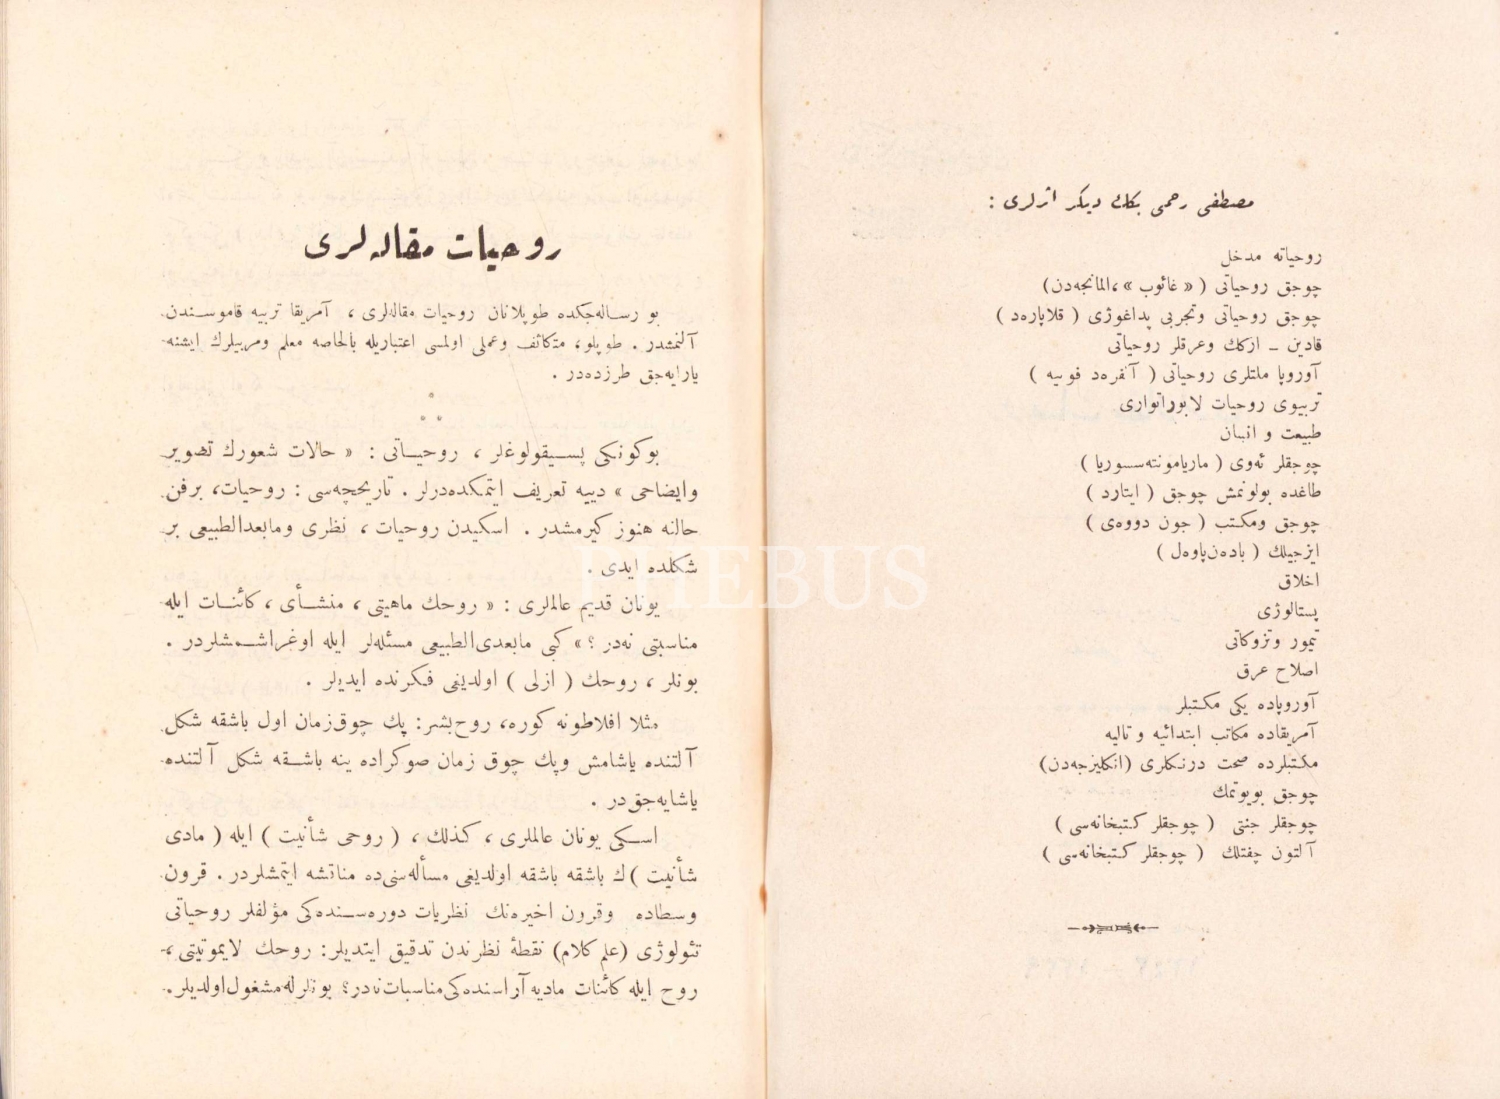 مصطفى رحمى بكك ديكر اثرلرى :
روحياته مدخل
چوجق روحياتى ( « غائوب » ، المانجه‌دن)
چوجق روحياتى وتجربى پداغوژى ( قلاپاره‌د )
قادين ـ اركك وعرقلر روحياتى
آوروپا ملتلرى روحياتى ( آلفره‌د فوييه )
تربيوى روحيات لابوراتوارى
طبيعت و انسان
چوجقلر ئه‌وى ( ماريامونته‌سسوريا )
طاغده بولونمش چوجق ( ايتارد )
چوجق ومكتب ( جون دووه‌ى )
ايزجيلك ( باده‌ن‌پاوه‌ل )
اخلاق
پستالوژى
تيمور وتزوكاتى
اصلاح عرق
آوروپاده يكى مكتبلر
آمريقاده مكاتب ابتدائيه و تاليه
مكتبلرده صحت درنكلرى (انكليزجه‌دن)
چوجق بويوتمك
چوجقلر جنتى ( چوجقلر كتبخانه‌سى )
آلتون چفتلك ( چوجقلر كتبخانه‌سى )
روحيات مقاله‌لرى
بو رساله‌جكده طوپلانان روحيات مقاله‌لرى ، آمريقا تربيه قاموسندن
آلنمشدر . طوپلو، متكاثف وعملى اولمسى اعتباريله بالخاصه معلم ومربيلرك ايشنه
يارايه‌جق طرزده‌در .
بوكونكى پسيقولوغلر ، روحياتى : « حالات شعورك تصوير
وايضاحى » دييه تعريف ايتمكده‌درلر . تاريخچه‌سى : روحيات، برفن
حالنه هنوز كيرمشدر . اسكيدن روحيات ، نظرى ومابعدالطبيعى بر
شكلده ايدى .
يونان قديم عالملرى : « روحك ماهيتى ، منشأى ، كائنات ايله
مناسبتى نه‌در ؟ » كبى مابعدى‌الطبيعى مسئله‌لر ايله اوغراشمشلردر .
بونلر ، روحك ( ازلى ) اولديغى فكرنده ايديلر .
مثلا افلاطونه كوره، روح‌بشر: پك چوق‌زمان اول باشقه شكل
آلتنده ياشامش وپك چوق زمان صوكراده ينه باشقه شكل آلتنده
ياشايه‌جق‌در .
اسكى يونان عالملرى ، كذلك ، ( روحى شأنيت ) ايله ( مادى
شأنيت )ك باشقه باشقه اولديغى مسأله‌سى‌ده مناقشه ايتمشلردر . قرون
وسطاده وقرون اخيره‌نك نظريات دوره‌سنده‌كى مؤلفلر روحياتى
تئولوژى (علم كلام) نقطهٔ نظرندن تدقيق ايتديلر: روحك لايموتيتى ،
روح ايله كائنات ماديه آراسنده‌كى مناسبات نه‌در؟ بونلرله مشغول اولديلر.
PHEBUS